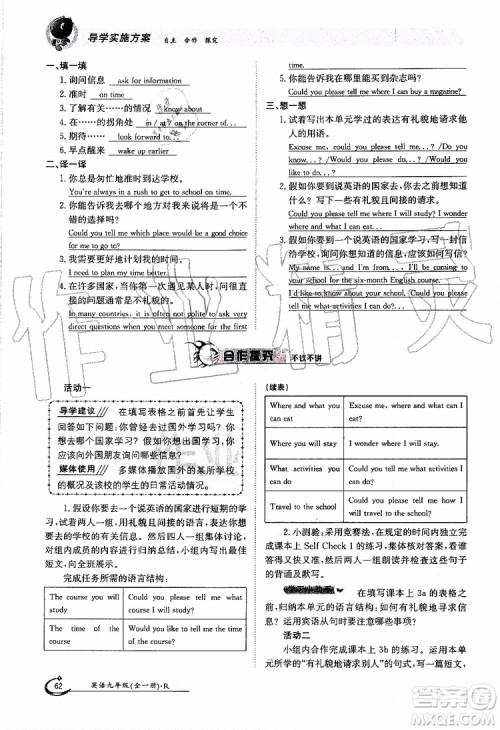 导学实施方案 自主 合作 探究
一、填一填
1. 询问信息 ask for information
2. 准时 on time
3. 了解有关……的情况 know about
4. 在……的拐角处 at / on the corner of...
5. 期待…… look forward to...
6. 早点醒来 wake up earlier
二、译一译
1. 你总是匆忙地准时到达学校。
You're always in a rush to get to school on time.
2. 你能告诉我去哪个地方对我来说是不错的选择吗?
Could you tell me which place would be a good choice for me to go to?
3. 我需要更好地计划我的时间。
I need to plan my time better.
4. 在许多国家,当你第一次遇见某人时,问很直接的问题通常是不礼貌的。
In many countries, it is often not polite to ask very direct questions when you meet someone for the first
time.
5. 你能告诉我可以在哪里买到杂志吗?
Could you please tell me where I can buy a magazine?
三、想一想
1. 试着写出本单元学过的表达有礼貌地请求他人的用语。
Excuse me, could you please tell me...? /Do you know...?
2. 假如你要到说英语的国家去,你可能想了解什么?写下一些有礼貌地请求信息的句子。
Excuse me, could you please tell me...? /I wonder where I can eat.
3. 假如你要到说英语的国家学习,写一封信给学校,你想知道什么信息,你应该怎样问?
My name is...and I'm from.... I'll be coming to your school for the six-month English course.
I'd like to know about your school. Could you please tell me what activities I can do?
合作探究 不议不讲
活动一
导学建议 在填写表格之前首先让学生回答一些问题:你们想出国学习吗?你们应该问哪些问题?
媒体使用 多媒体播放国外的某所学校以及该校的学生的日常活动情况。
1. 假设你要去一个说英语的国家进行短期学习。试着两人一组,根据表格内的提示编写对话,对组内成员的英语水平、语言、行为进行评价。再变成短文,班内分享。
完成任务所需的语言结构:
The course you will study
Could you please tell me the course you will study?
The time of the course
Could you please tell me the time of the course?
(续表)
Where and what you can eat
Excuse me, where and what can I eat?
Where you will stay
I wonder where you will stay.
What activities you can do
Could you tell me what activities I can do?
Travel to the school
Could you please tell me how I can get to the school?
2. 小测验:采用竞赛法,在规定的时间内独立完成课本上 Self Check 1 的练习,集体核对答案,看谁做得又对又快。然后两人一组朗读并完成句子的背诵及默写。
在填写课本上 3a 的表格之前,归纳本单元的语言结构:如何有礼貌地寻求信息?运用宾语从句时应注意什么?
活动二
小组内合作完成课本上 3b 的练习。运用本单元所学的“有礼貌地请求别人”的句式,写一篇短文,
62 英语九年级(全一册)·R
作业精灵